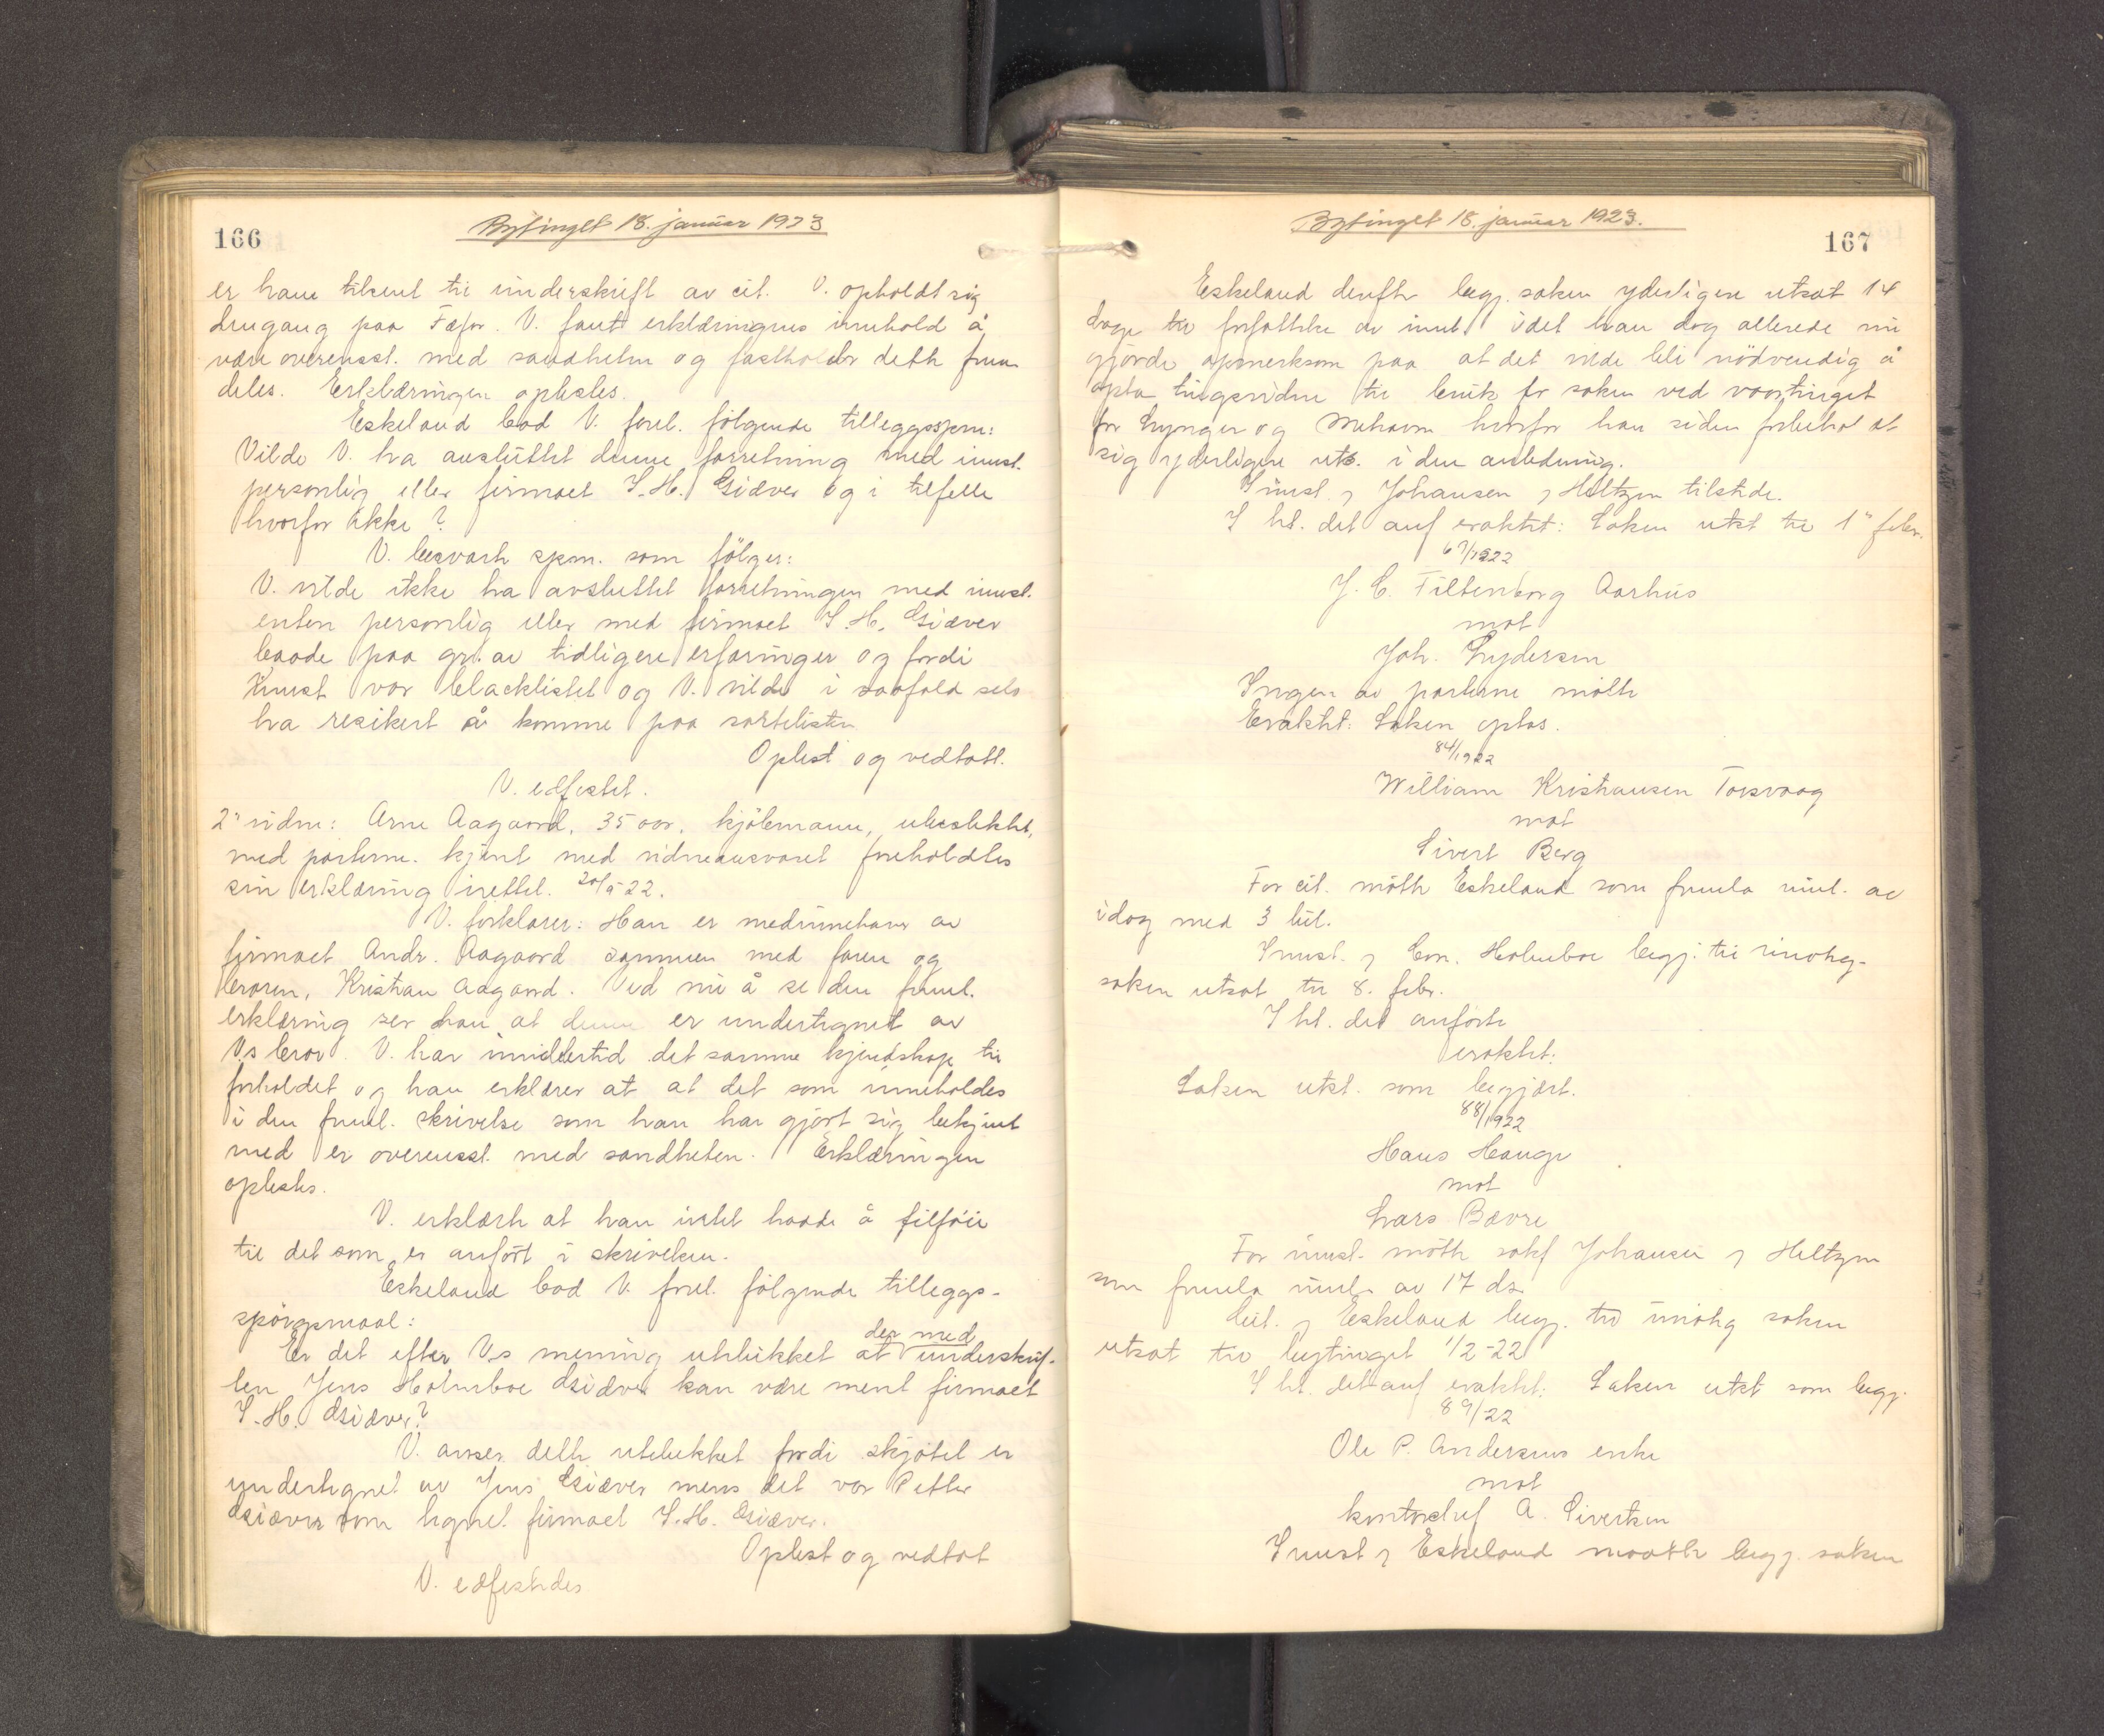 166
Bytinget 18. januar 1923
er ham tilsent til underskrift av cit. V. opholdt sig
dengang paa Fæfor. V. fant erklæringens innhold å
være overensst. med sandheten og fastholder dette frem
deles. Erklæringen oplestes.
Eskeland bad V. forel. følgende tilleggsspm:
Vilde V. ha avsluttet denne forretning med innst.
personlig eller firmaet I. H. Giæver og i tilfelle
hvorfor ikke?
V. besvarte spm. som følger:
V. vilde ikke ha avsluttet forretningen med innst.
enten personlig eller med firmaet I. H. Giæver
baade paa gr. av tidligere erfaringer og fordi
innst var blacklistet og V. vilde i saafald selv
ha resikert å komme paa sortelisten
Oplest og vedtatt.
V. edfestet.
2" vidne: Arne Aagaard, 35 aar, kjøbmann, ubeslektet,
med parterne. kjent med vidneansvaret foreholdtes
sin erklæring irettel. 20/5-22.
V. forklarer: Han er medinnehaver av
firmaet Andr. Aagaard sammen med faren og
broren, Kristian Aagaard. Ved nu å se den freml.
erklæring ser han at denne er undertegnet av
V.s bror. V. har imidlertid det samme kjendskap til
forholdet og han erklærer at at det som inneholdes
i den freml. skrivelse som han har gjort sig bekjent
med er overensst. med sandheten. Erklæringen
oplestes.
V. erklærte at han intet hadde å tilføie
til det som er anført i skrivelsen.
Eskeland bad V. forel. følgende tilleggs-
spørgsmaal:
Er det efter V.s mening utelukket at der med underskrif-
ten Jens Holmboe Giæver kan være ment firmaet
I. H. Giæver?
V. anser dette utelukket fordi skjøtet er
undertegnet av Jens Giæver mens det var Petter
Giæver som tegnet firmaet I. H. Giæver.
Oplest og vedtat
V. edfestedes
Bytinget 18. januar 1923.
167
Eskeland derefter begj. saken yderligere utsat 14
dage til forfattelse av innl. idet han dog allerede nu
gjorde opmerksom paa at det vilde bli nødvendig å
opta tingsvidne til bruk for saken ved vaartinget
for Lyngen og Mehavn hvorfor han siden forbeholdt
sig yderligere uts. i den anledning.
Innst. v Johansen v Hiltzen tilstede.
I hl. det anf eraktet: Saken utst til 1" febr.
67/1922
J. C. Filtenborg Aarhus
mot
Joh. Lydersen
Ingen av parterne møtte
Eraktet: Saken optas.
84/1922
William Kristiansen Torsvaag
mot
Sivert Berg
For cit. møtte Eskeland som fremla innl. av
idag med 3 bil.
Innst. v Con. Holmboe begj. til innlæg
saken utsat til 8. febr.
I hl. det anførte
eraktet:
Saken utst. som begjært.
88/1922
Hans Hauge
mot
Lars Bævre
For innst. møtte sakf Johansen v Hiltzen
som fremla innl. av 17 ds.
Cit. v Eskeland begj. til innlæg saken
utsat til bytinget 1/2-22
I hl. det anf eraktet: Saken utst som begj.
89/22
Ole P. Andersens enke
mot
kontorchef A. Sivertsen
Innst v Eskeland møtte begj. saken